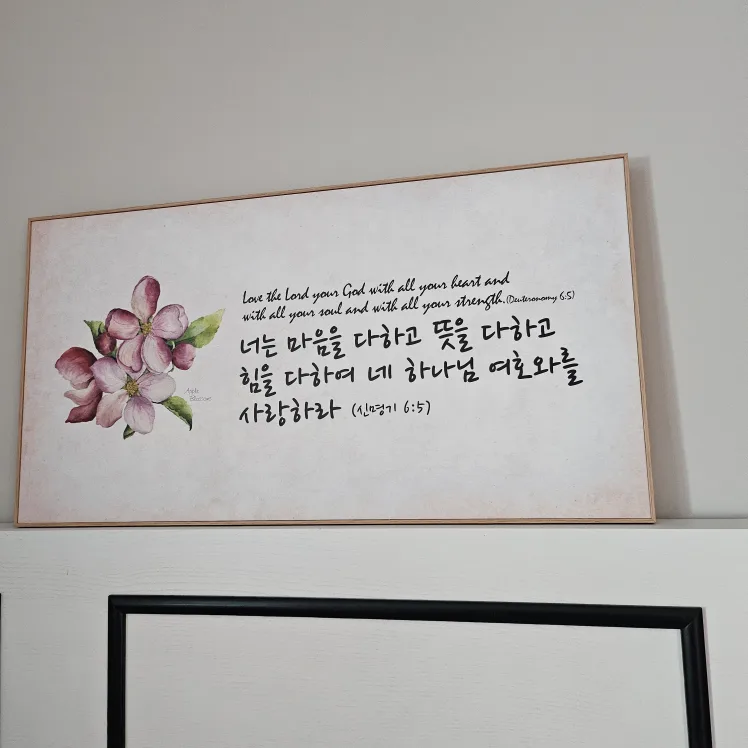 Love the Lord your God with all your heart and
with all your soul and with all your strength. (Deuteronomy 6:5)
너는 마음을 다하고 뜻을 다하고
힘을 다하여 네 하나님 여호와를
사랑하라 (신명기 6:5)
Apple
Blossom